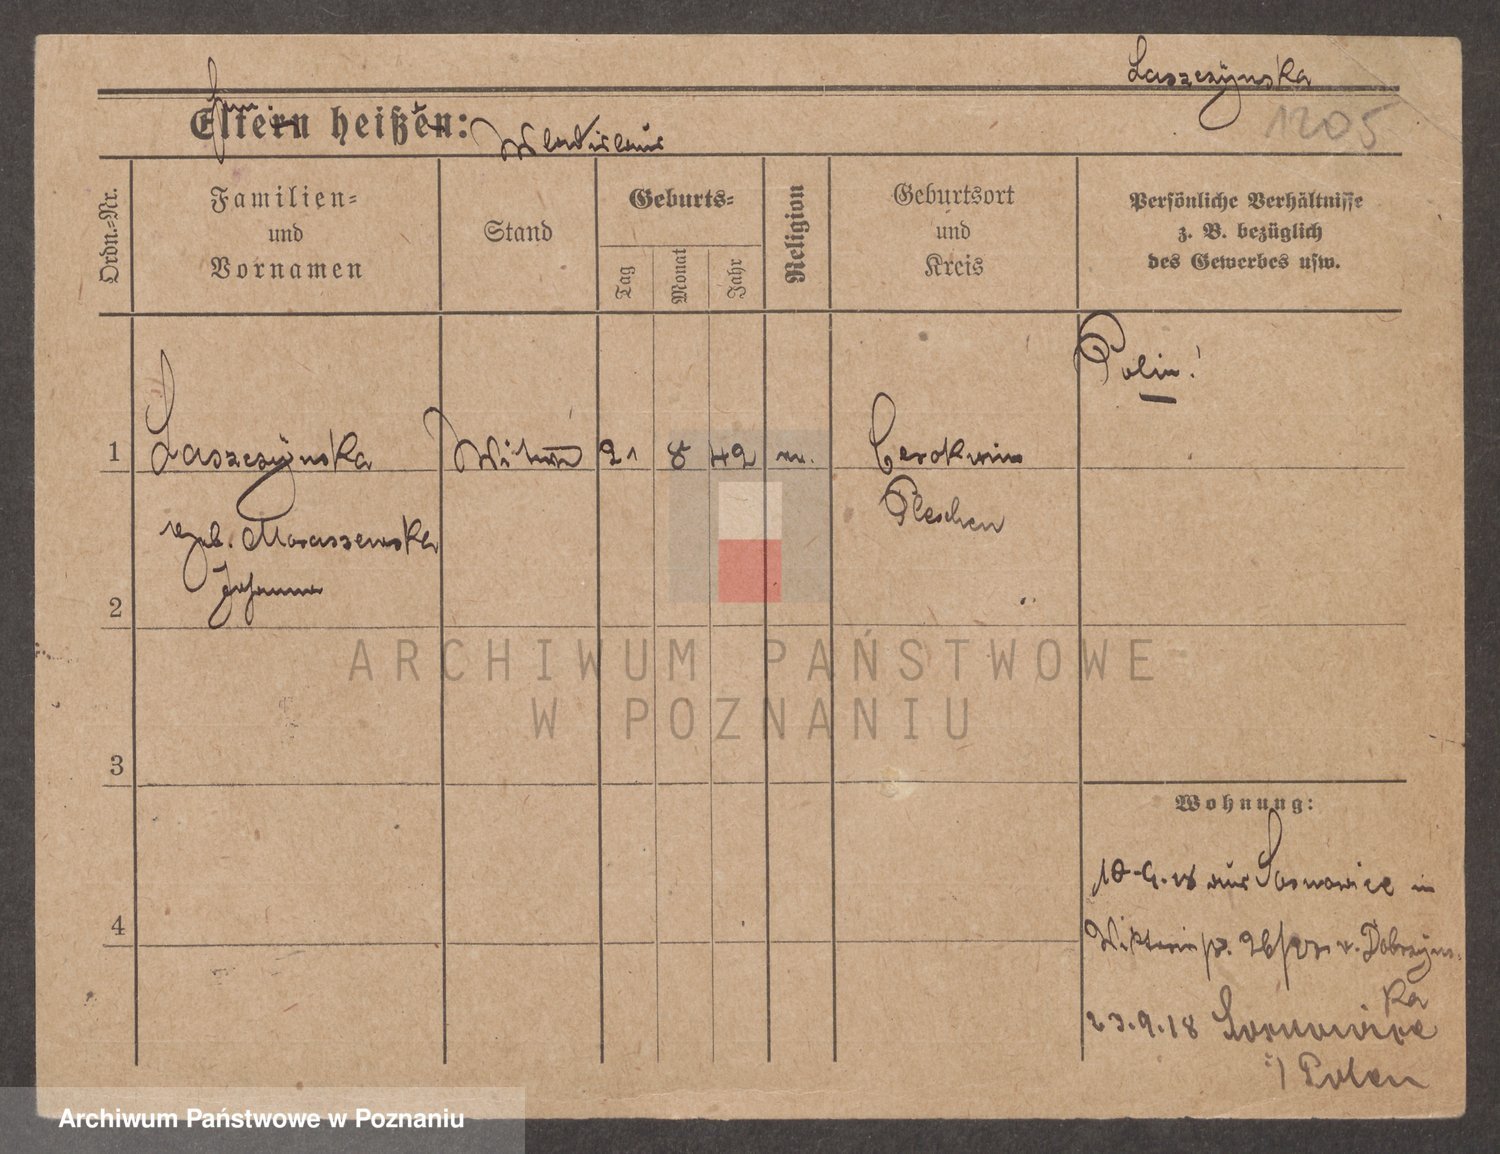 Laszczynska
1205
Eltern heißen: Wladislaus
Ordn.-Nr.
Familien-
und
Vornamen
Stand
Geburts-
Tag
Monat
Jahr
Religion
Geburtsort
und
Kreis
Persönliche Verhältnisse
z. B. bezüglich
des Gewerbes usw.
Polin!
1 Laszczynska Witwe 21 8 42 Cerekwica
Pleschen
geb. Moraszewska
Johanna
2
3
4
Wohnung:
18.9.18 aus Sosnowice in
v. Dobrzyns-
ka
23.9.18 Sosnowice
i/ Polen
ARCHIWUM PAŃSTWOWE
W POZNANIU
Archiwum Państwowe w Poznaniu